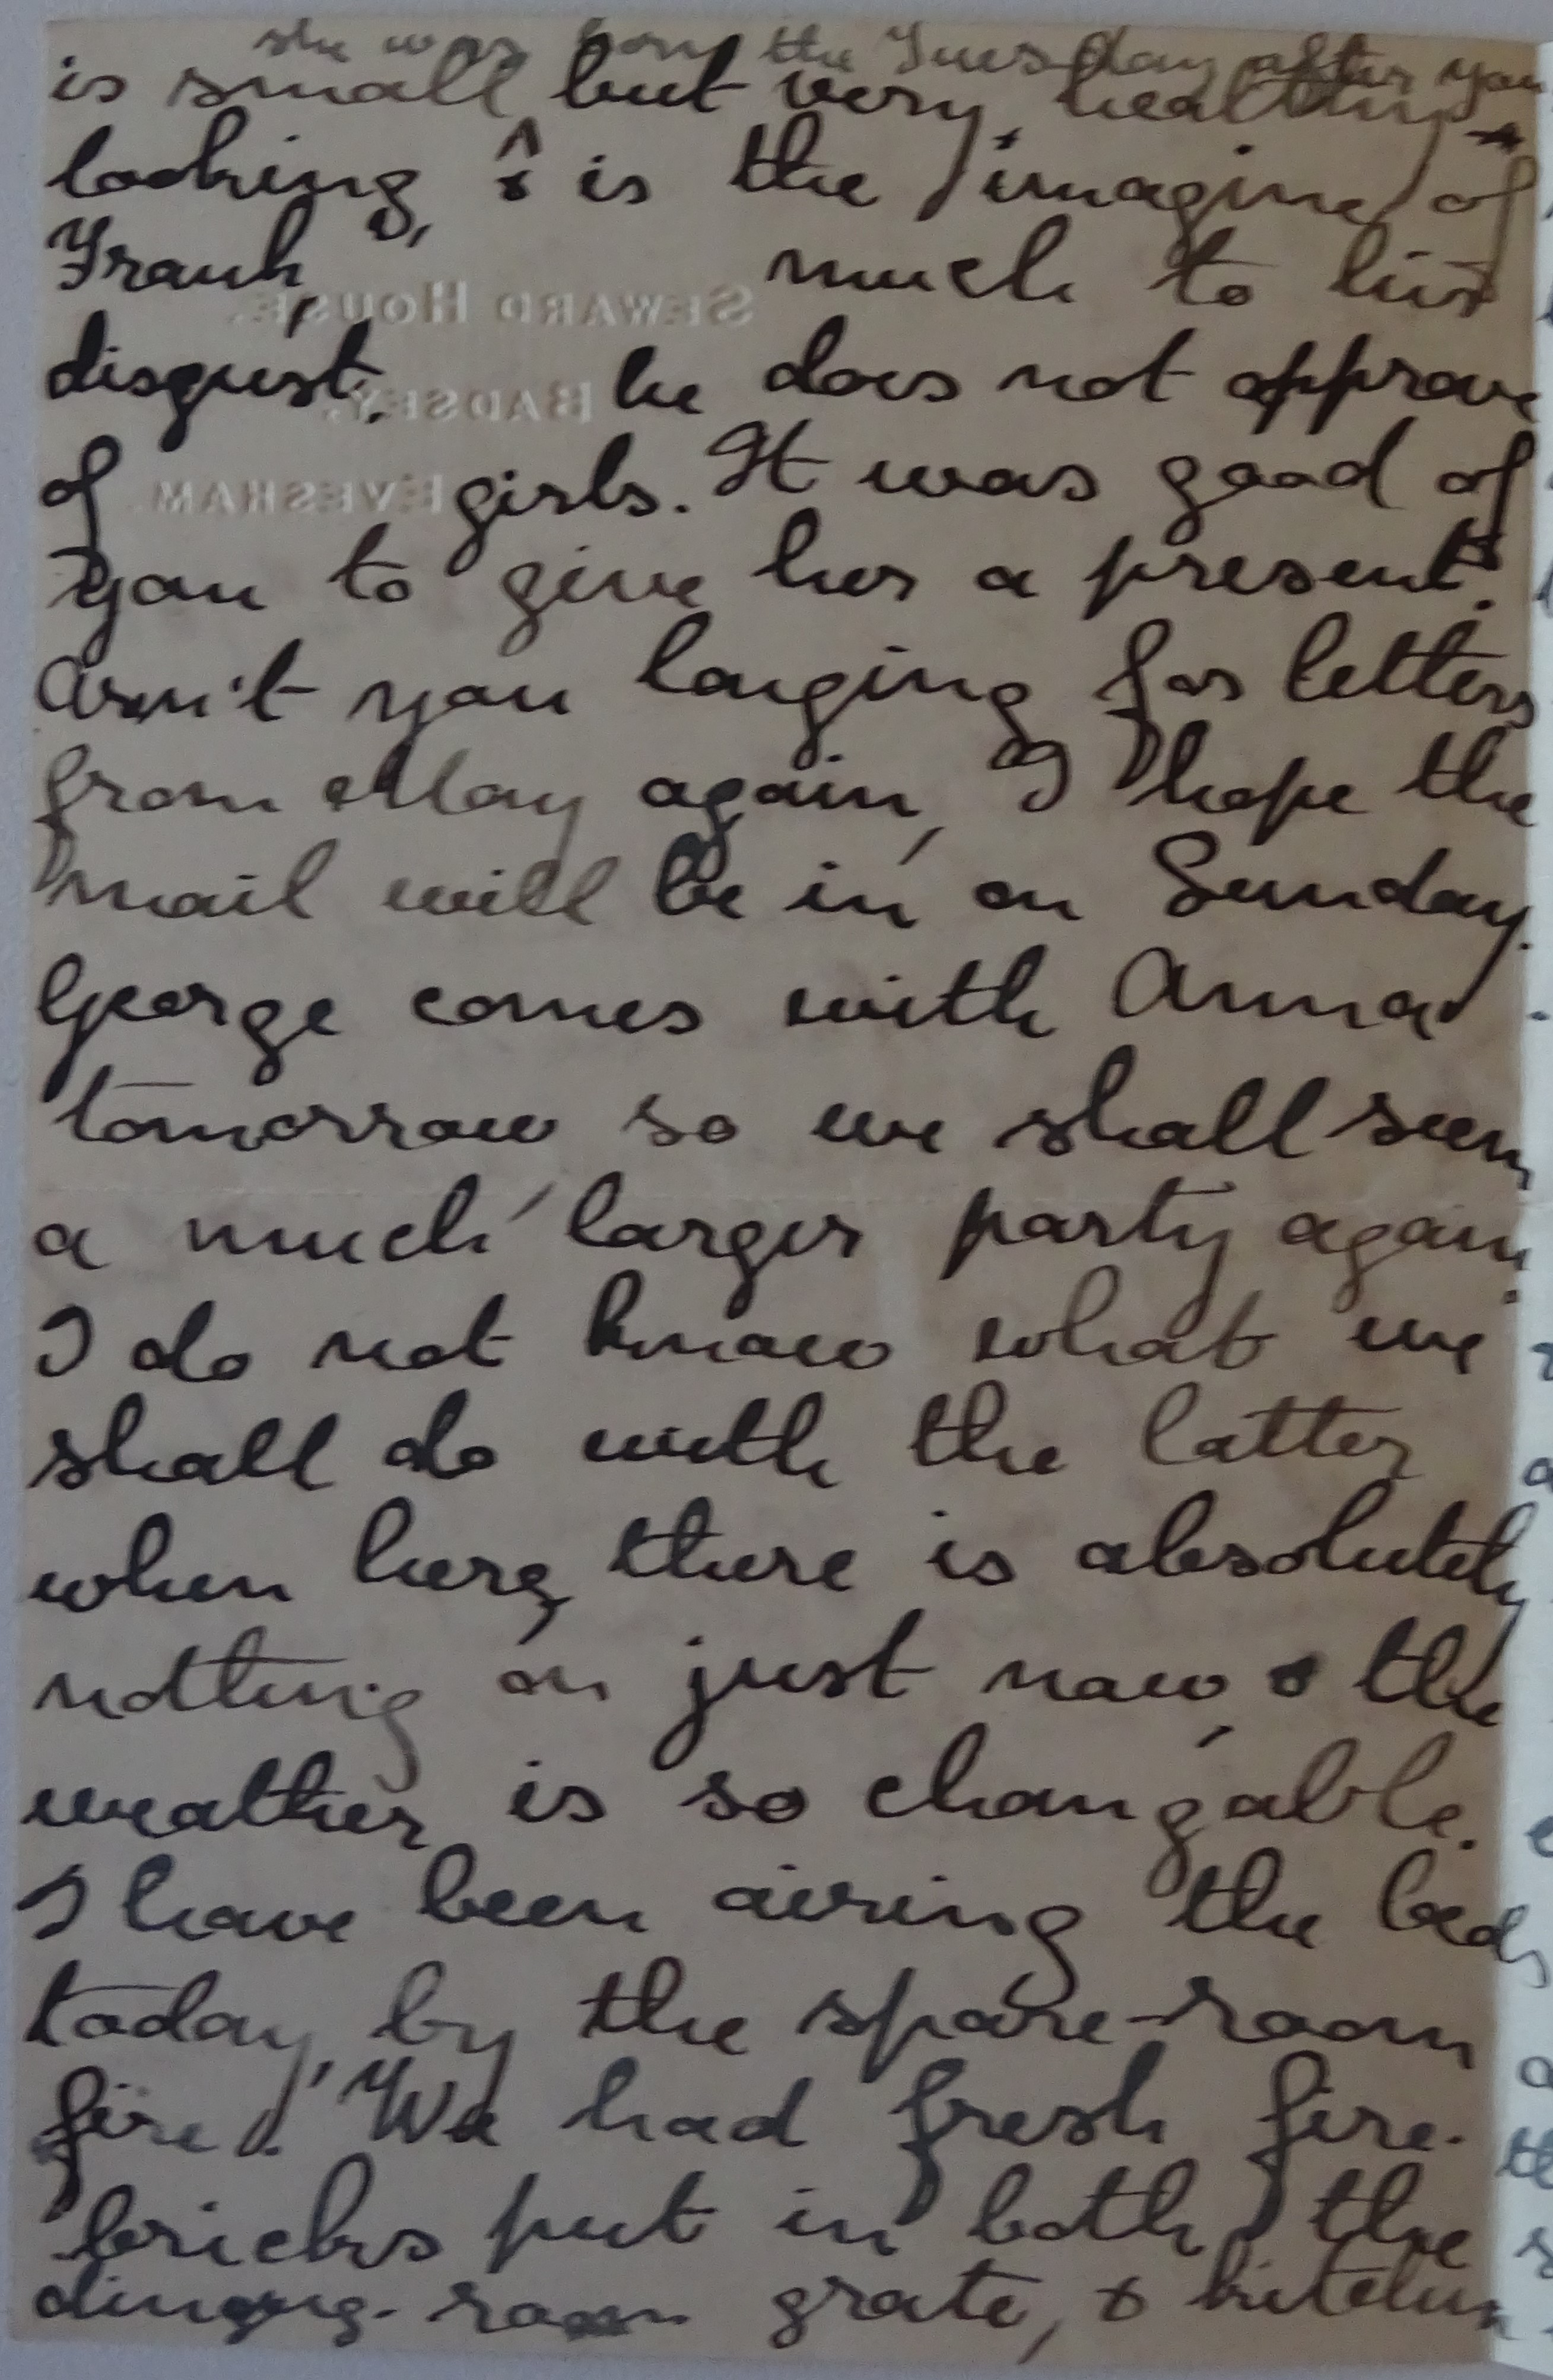 she was born the Tuesday after you
is small but very healthy
looking, & is the imagine of
Frank, much to his
disgust, he does not approve
of girls. It was good of
you to give her a present.
Arn't you longing for letters
from May again, I hope the
mail will be in on Sunday.
George comes with Anna
tomorrow so we shall seem
a much larger party again.
I do not know what we
shall do with the latter
when here, there is absolutely
nothing on just now, & the
weather is so changable.
I have been airing the beds
today, by the spare-room
fire! We had fresh fire-
bricks put in both the
dining-room grate, & kitchen
SEWARD HOUSE.
BADSEY,
EVESHAM.